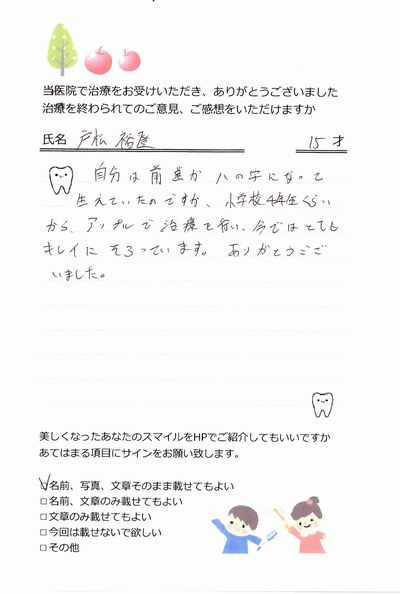 当医院で治療をお受けいただき、ありがとうございました
治療を終わられてのご意見、ご感想をいただけますか
氏名 戸松 裕登 15 才
自分は前歯がハの字になって
生えていたのですが、小学校4年生くらい
から、アップルで治療を行い、今ではとても
キレイにそろっています。ありがとうござ
いました。
美しくなったあなたのスマイルをHPでご紹介してもいいですか
あてはまる項目にサインをお願い致します。
名前、写真、文章そのまま載せてもよい
□名前、文章のみ載せてもよい
□文章のみ載せてもよい
□今回は載せないで欲しい
□その他